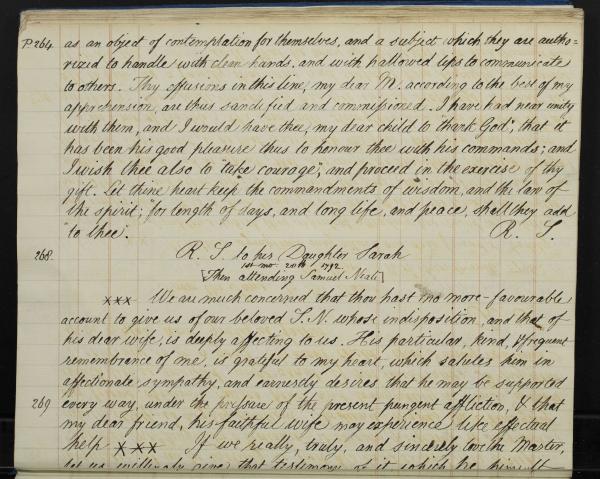 P. 264. as an object of contemplation for themselves, and a subject which they are autho-
rized to handle with clean hands, and with hallowed lips to communicate
to others. Thy effusions in this line, my dear M. according to the best of my
apprehension, are thus sanctified and commissioned. I have had near unity
with them, and I would have thee, my dear child to "thank God", that it
has been his good pleasure thus to honour thee with his commands; and
I wish thee also to "take courage", and proceed in the exercise of thy
gift. Let thine heart keep the commandments of wisdom, and the law of
the spirit; "for length of days, and long life, and peace, shall they add
to thee". R. S.
268. R. S. to his Daughter Sarah
1st mo. 20th 1792
[Then attending Samuel Neale]
xxx We are much concerned that thou hast no more favourable
account to give us of our beloved S. N. whose indisposition, and that of
his dear wife, is deeply affecting to us. His particular, kind, & frequent
remembrance of me, is grateful to my heart, which salutes him in
affectionate sympathy, and earnestly desires that he may be supported
269 every way, under the pressure of the present pungent affliction, & that
my dear friend, his faithful wife may experience like effectual
help xxx If we really, truly, and sincerely love the Master,
let us willingly give that testimony of it which he himself